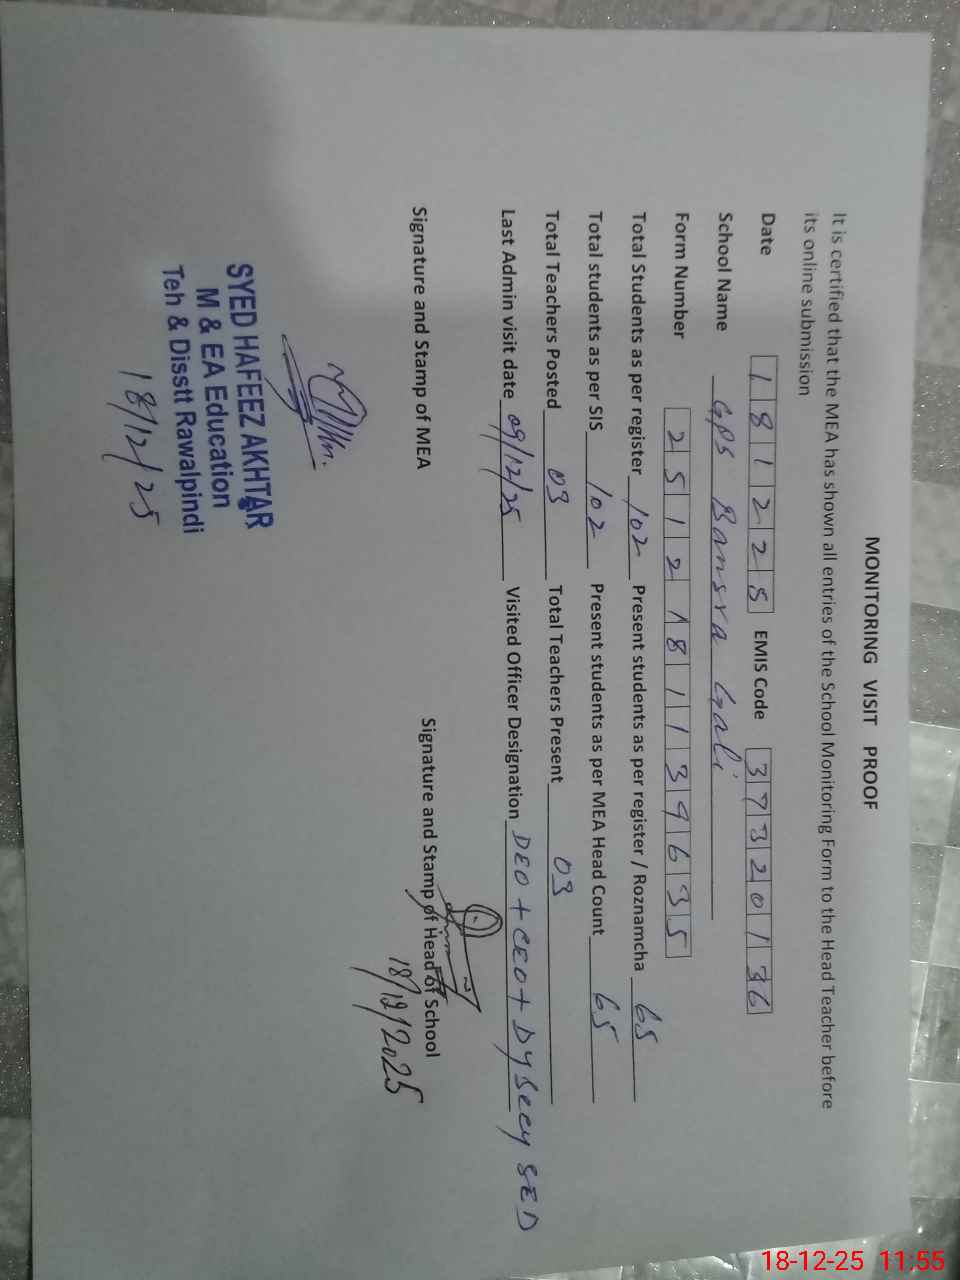 MONITORING VISIT PROOF
It is certified that the MEA has shown all entries of the School Monitoring Form to the Head Teacher before
its online submission
Date 181225 EMIS Code 37320136
School Name GPS Bansra Gali
Form Number 2512181139635
Total Students as per register 102 Present students as per register / Roznamcha 65
Total students as per SIS 102 Present students as per MEA Head Count 65
Total Teachers Posted 03 Total Teachers Present 03
Last Admin visit date 09/12/25 Visited Officer Designation DEO + CEO + Dy Secy SED
Signature and Stamp of MEA Signature and Stamp of Head of School
18/12/2025
SYED HAFEEZ AKHTAR
M & EA Education
Teh & Disstt Rawalpindi
18/12/25
18-12-25 11:55